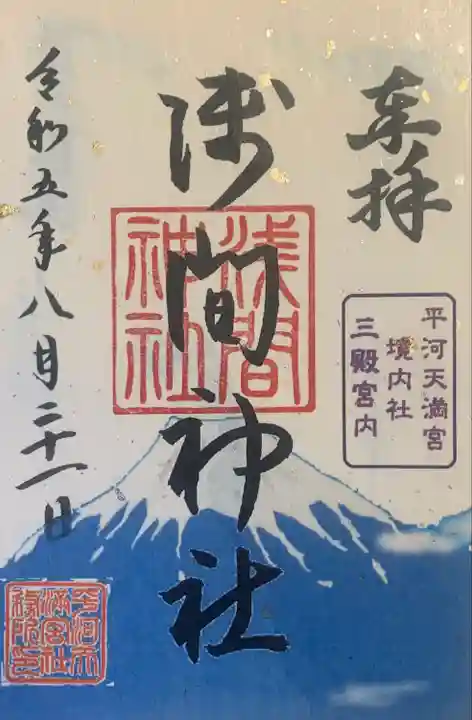 奉拝
平河天満宮
境内社
三殿宮内
浅間神社
浅間
神社
令和五年八月二十一日
平河天
満宮社
務所之印